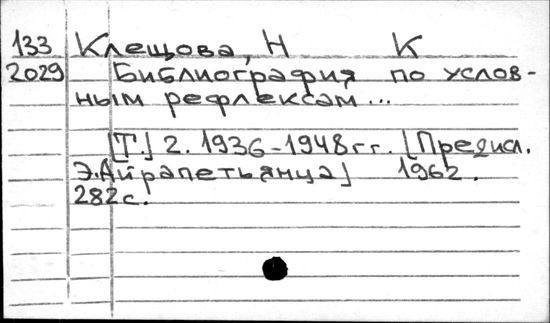 133 Клещова, Н К
2029 Библиография по услов-
ным рефлексам...
[Т.] 2. 1936-1948гг. [Предисл.
Э.Айрапетьянца] 1962.
282с.